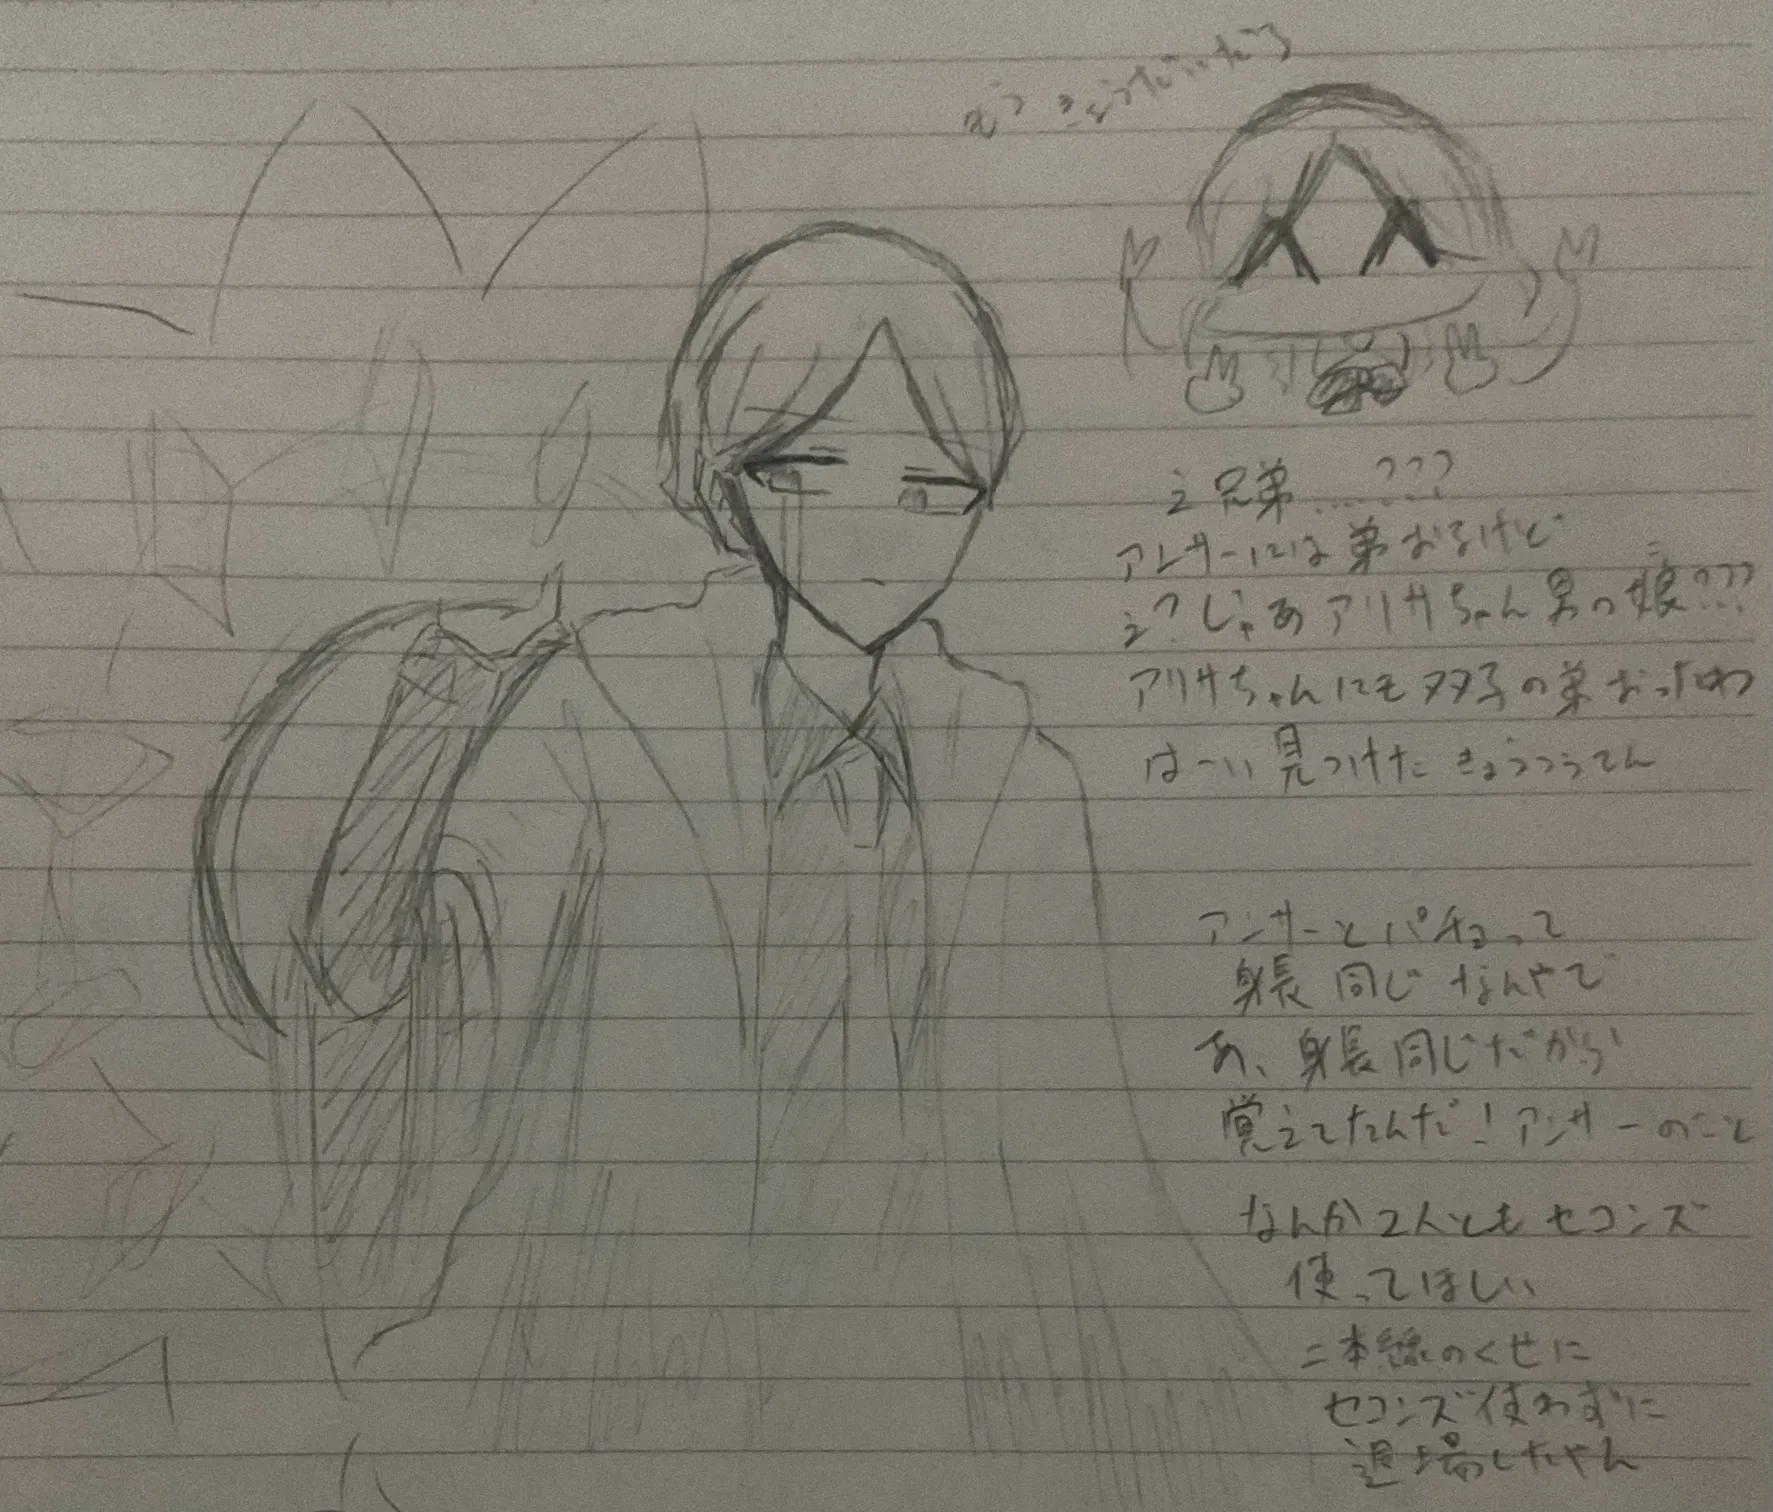 もうきょうだいだろ
え兄弟……???
アンサーには弟おるけど
え?じゃあアリサちゃん男の娘???
アリサちゃんにも双子の弟おったわ
はーい見つけたきょうつうてん
アンサーとパチョって
身長同じなんやで
あ、身長同じだから
覚えてたんだ!アンサーのこと
なんか2人ともセコンズ
使ってほしい
二本線のくせに
セコンズ使わずに
退場したやん